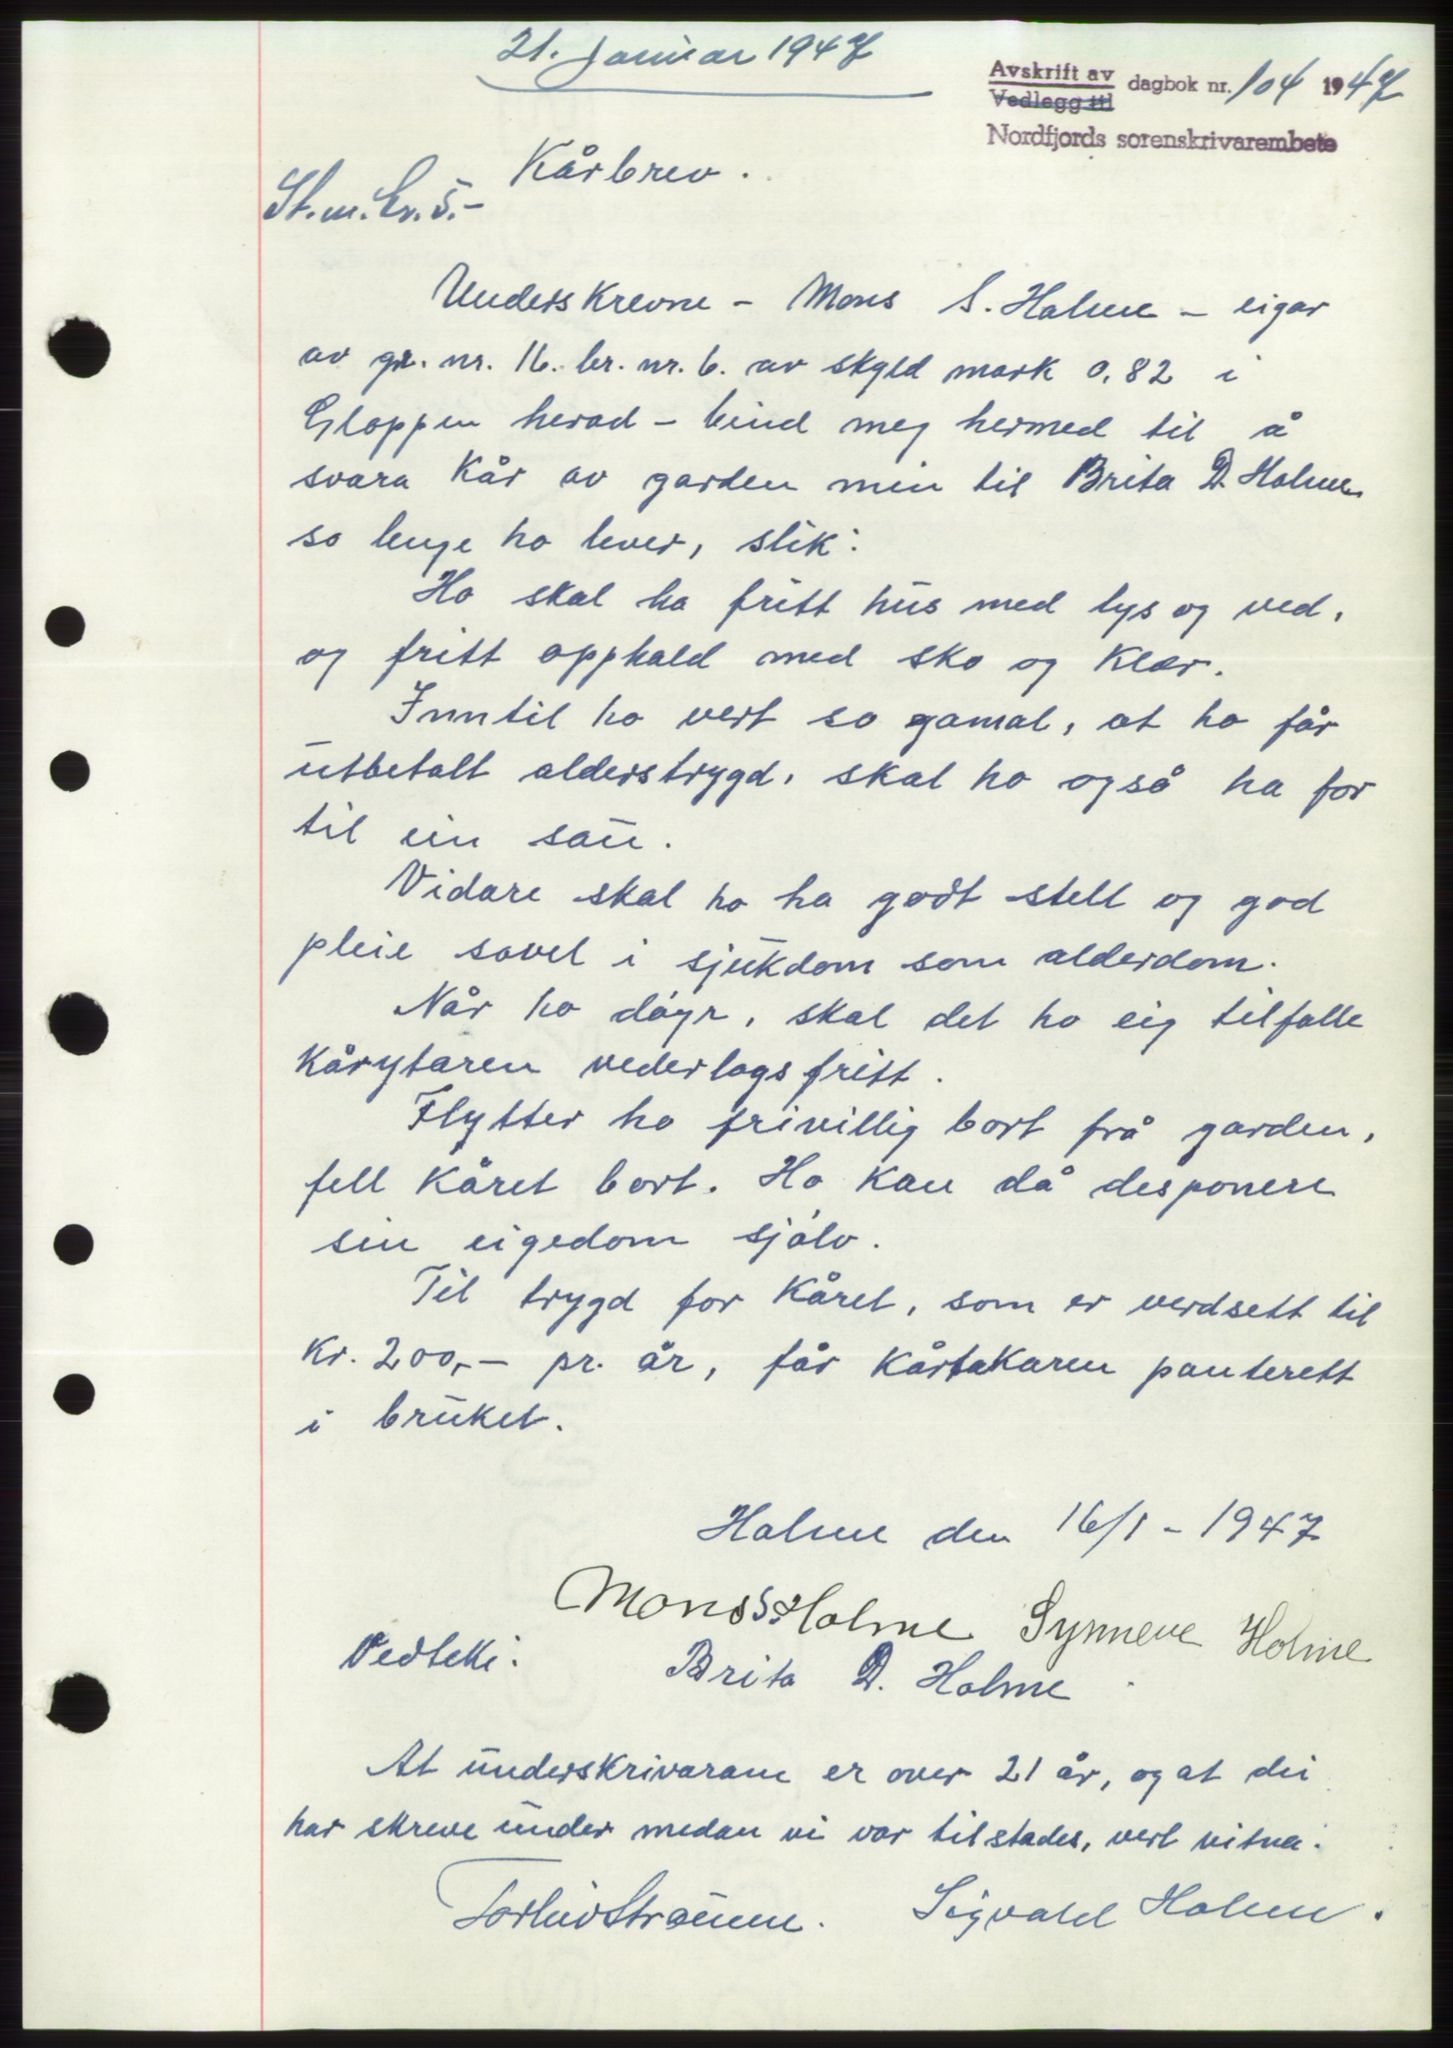 21. januar 1947
Avskrift av
Vedlegg til
dagbok nr. 104 1947
Nordfjords sorenskrivarembete
Kårbrev.
St.m.kr.5.-
Underskrevne - Mons S. Holme - eigar
av gr. nr. 16. br. nr. 6. av skyld mark 0,82 i
Gloppen herad - bind meg hermed til å
svara kår av garden min til Brita D. Holme
so lenge ho lever, slik:
Ho skal ha fritt hus med lys og ved,
og fritt opphald med sko og klær.
Inntil ho vert so gamal, at ho får
utbetalt alderstrygd, skal ho også ha for
til ein sau.
Vidare skal ho ha godt stell og god
pleie sovel i sjukdom som alderdom.
Når ho døyr, skal det ho eig tilfalle
kårytaren vederlagsfritt.
Flytter ho frivillig bort frå garden,
fell kåret bort. Ho kan då desponere
sin eigedom sjølv.
Til trygd for kåret, som er verdsett til
kr. 200,- pr. år, får kårtakaren panterett
i bruket.
Holme den 16/1 - 1947
Mons S. Holme Synneve Holme
Vedteke:
Brita D. Holme
At underskrivarane er over 21 år, og at dei
har skreve under medan vi var tilstades, vert vitna.
Torleiv Straume. Sigvald Holme.